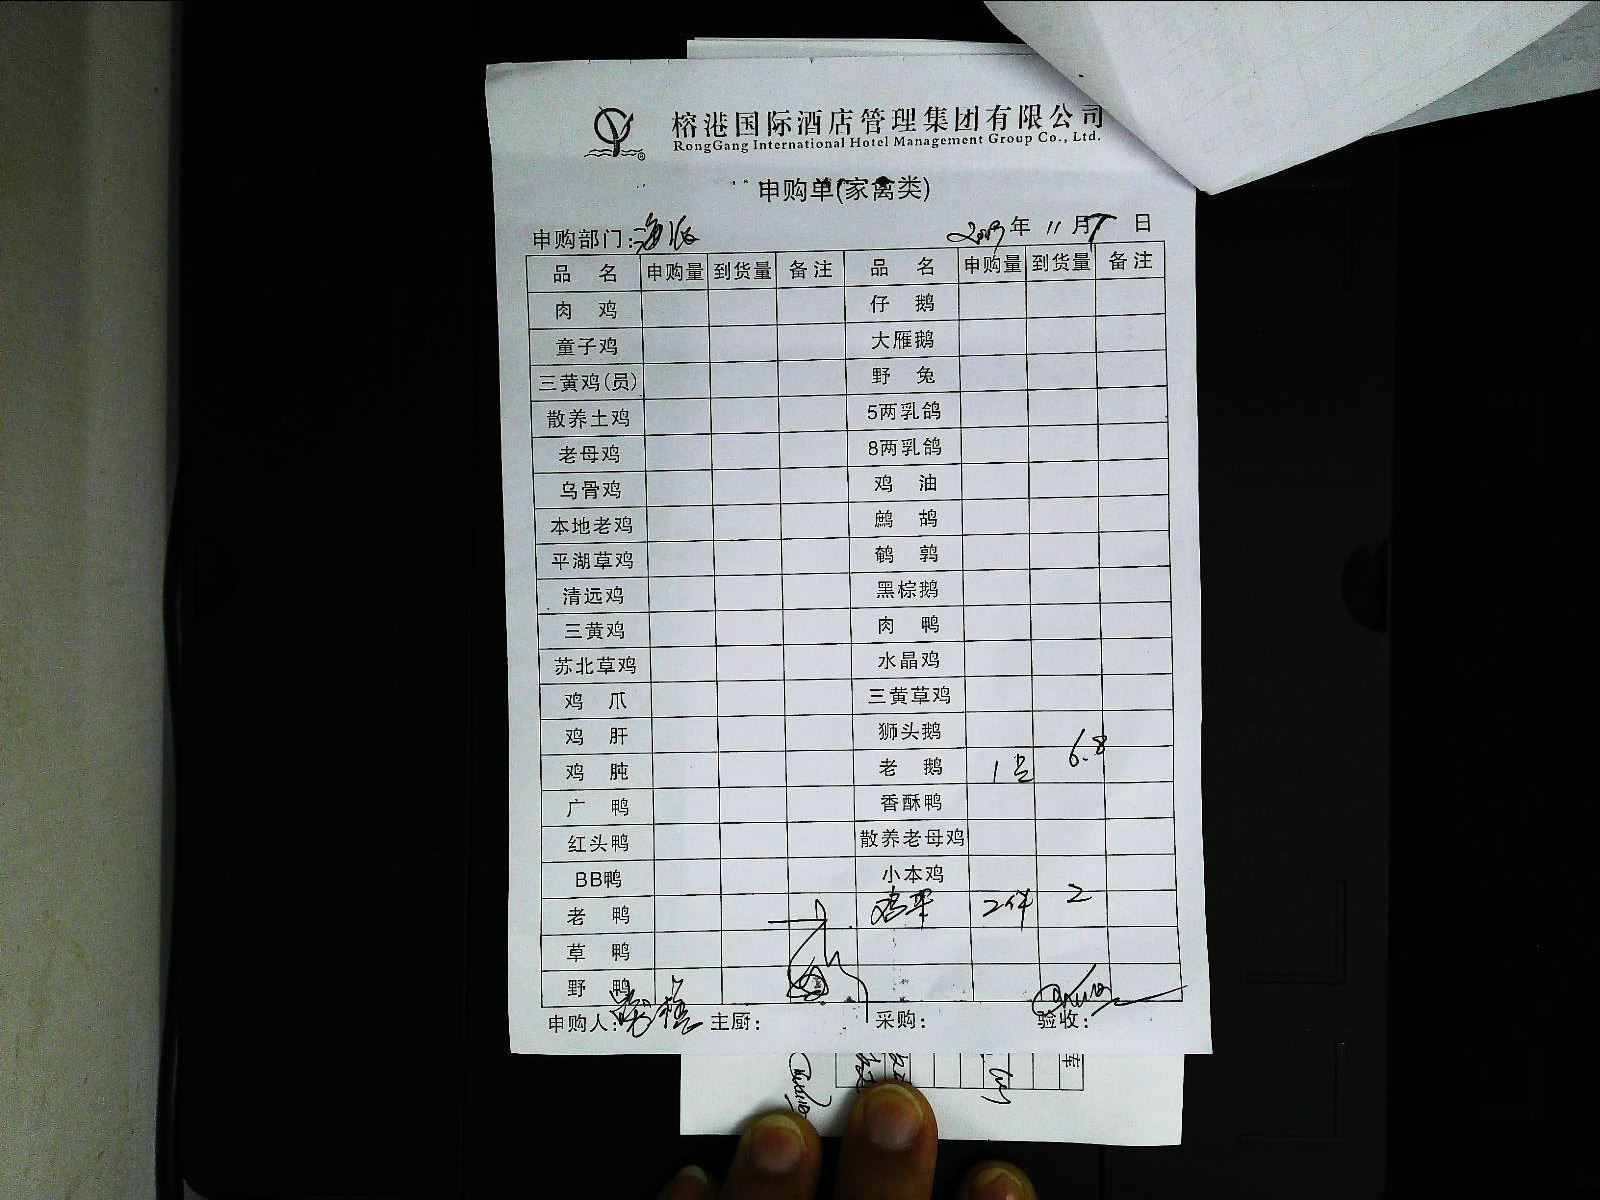 榕港国际酒店管理集团有限公司
RongGang International Hotel Management Group Co., Ltd.
申购单(家禽类)
申购部门: 年 11 月 日
品 名 申购量 到货量 备注 品 名 申购量 到货量 备注
肉 鸡 仔 鹅
童子鸡 大雁鹅
三黄鸡(员) 野 兔
散养土鸡 5两乳鸽
老母鸡 8两乳鸽
乌骨鸡 鸡 油
本地老鸡 鹧 鸪
平湖草鸡 鹌 鹑
清远鸡 黑棕鹅
三黄鸡 肉 鸭
苏北草鸡 水晶鸡
鸡 爪 三黄草鸡
鸡 肝 狮头鹅
鸡 肫 老 鹅 1只 6.8
广 鸭 香酥鸭
红头鸭 散养老母鸡
BB鸭 小本鸡
老 鸭 2件 2
草 鸭
野 鸭
申购人: 主厨: 采购: 验收: